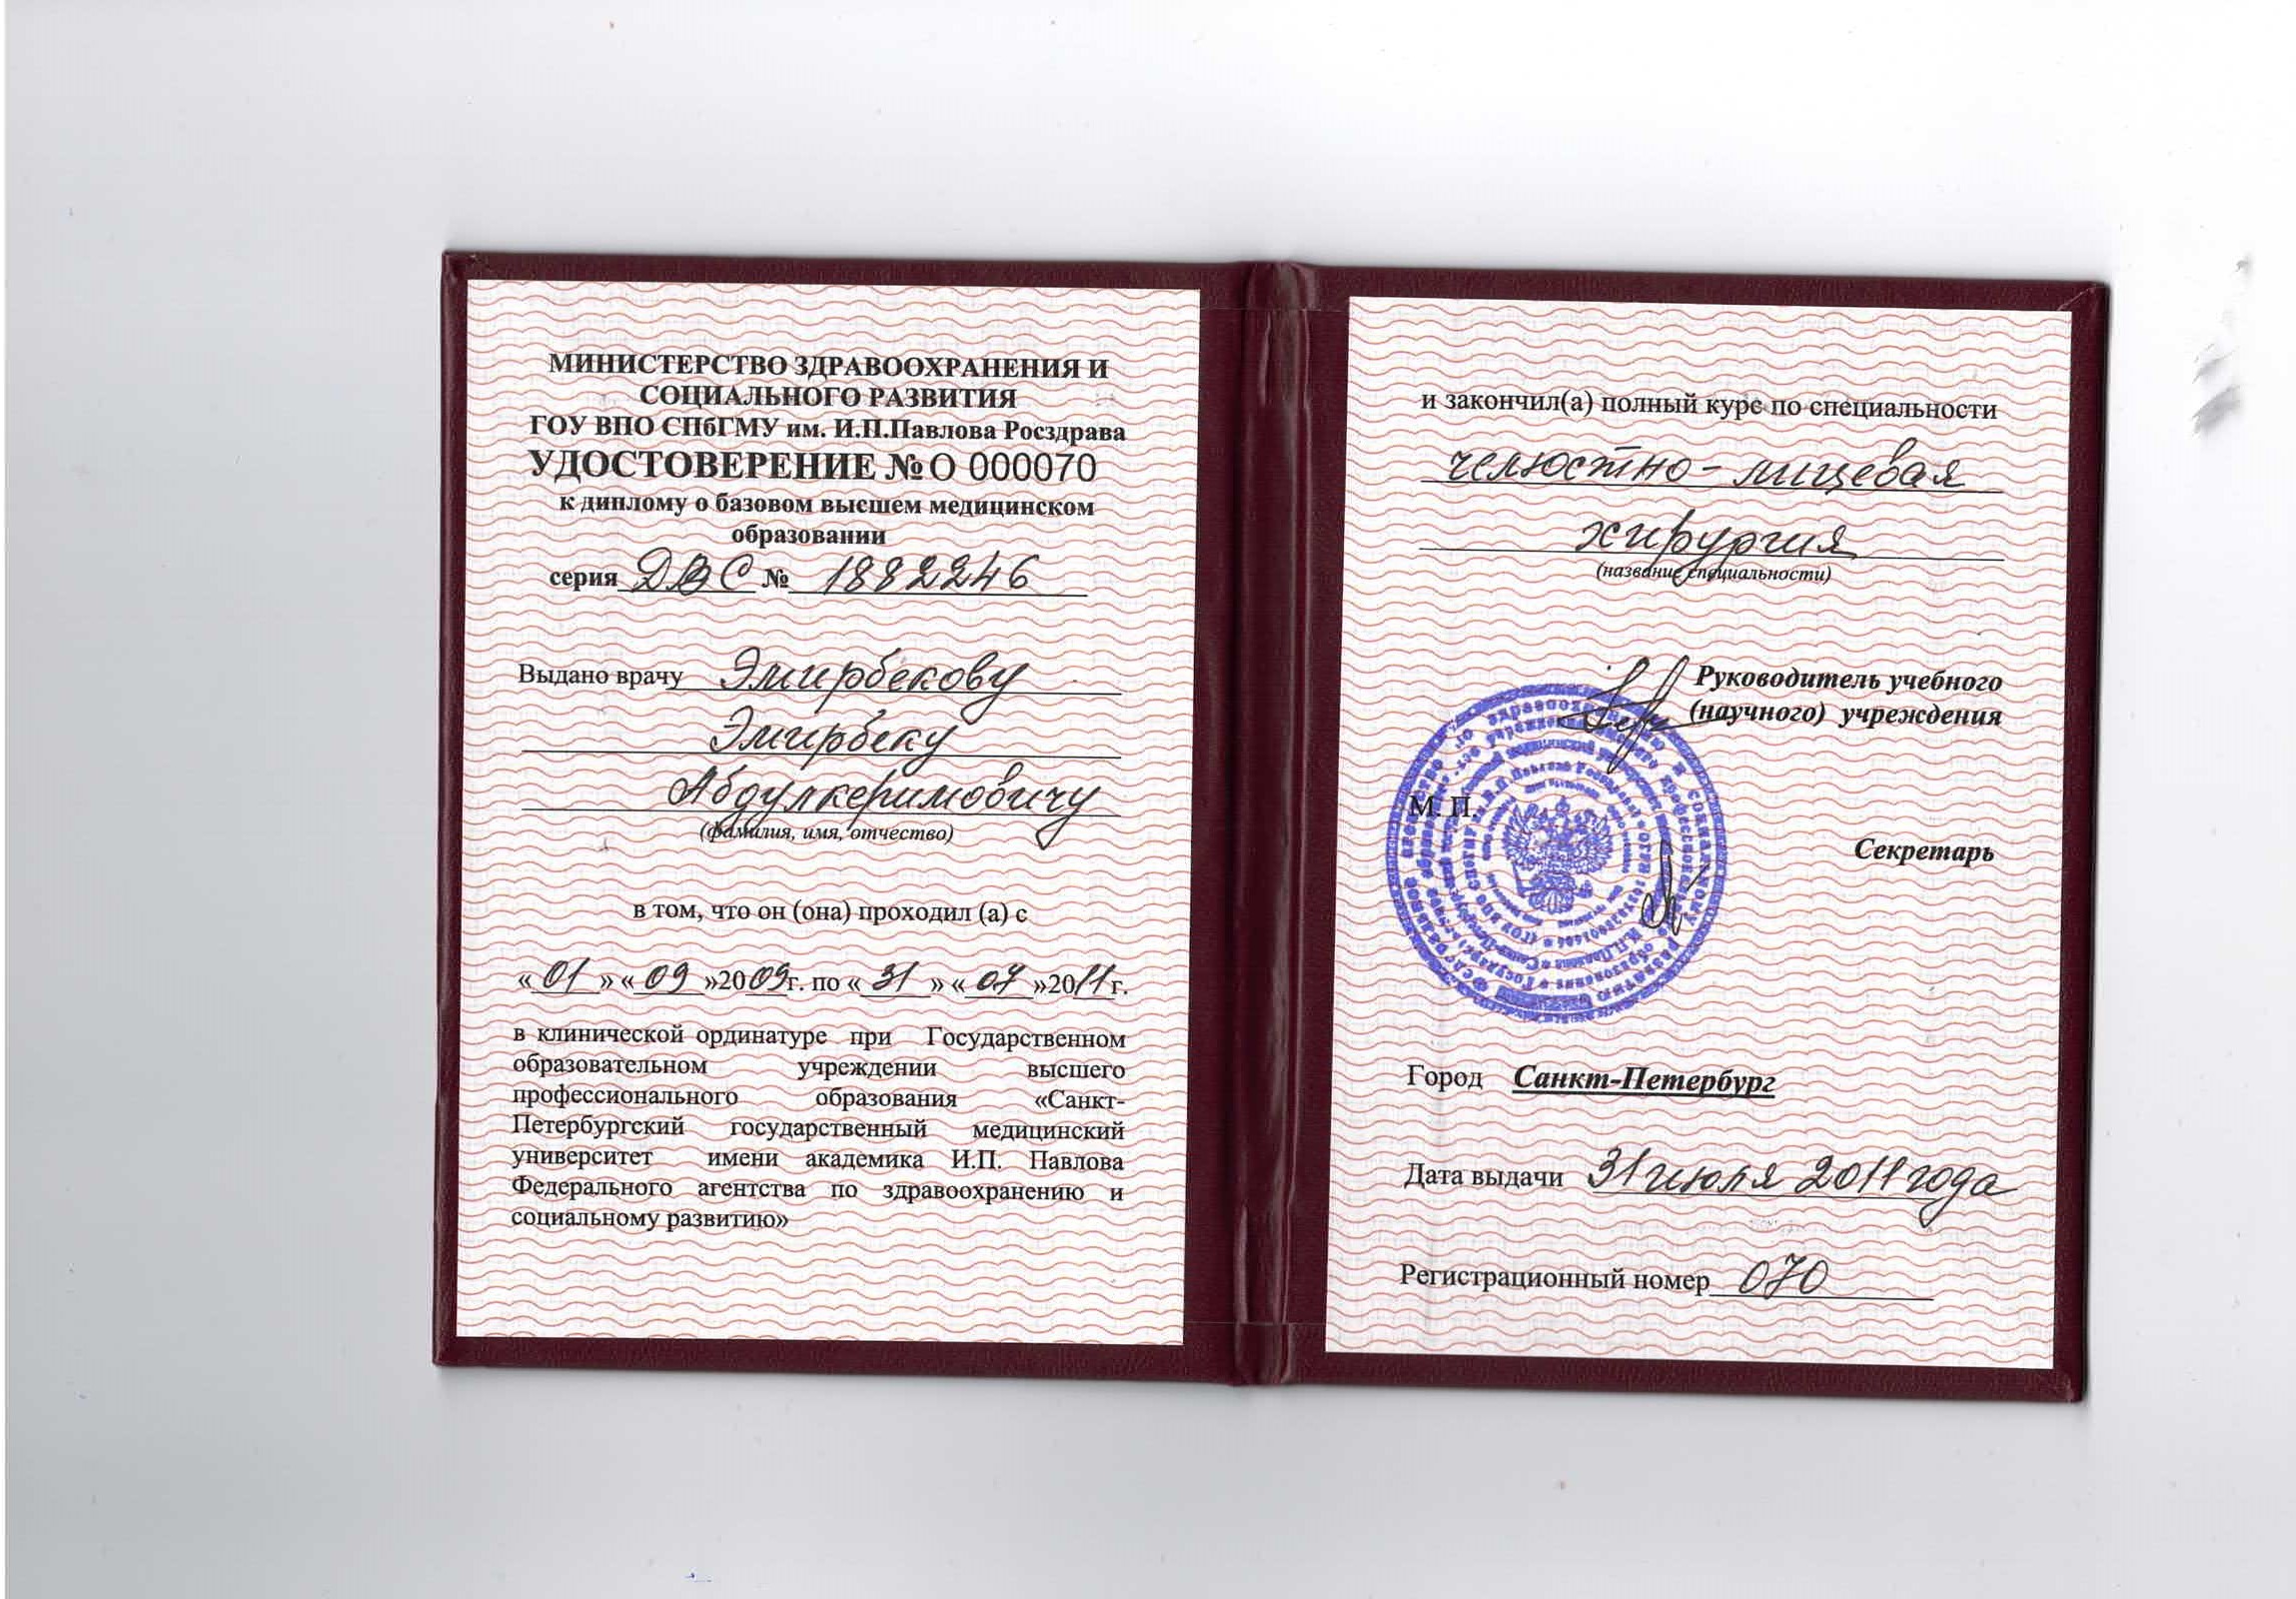 МИНИСТЕРСТВО ЗДРАВООХРАНЕНИЯ И
СОЦИАЛЬНОГО РАЗВИТИЯ
ГОУ ВПО СПбГМУ им. И.П.Павлова Росздрава
УДОСТОВЕРЕНИЕ №О 000070
к диплому о базовом высшем медицинском
образовании
серия ДВС № 1882246
Выдано врачу Эмирбекову
Эмирбеку
Абдулкеримовичу
(фамилия, имя, отчество)
в том, что он (она) проходил (а) с
«01» «09»2009г. по «31» «07»2011г.
в клинической ординатуре при Государственном
образовательном учреждении высшего
профессионального образования «Санкт-
Петербургский государственный медицинский
университет имени академика И.П. Павлова
Федерального агентства по здравоохранению и
социальному развитию»
и закончил(а) полный курс по специальности
челюстно-лицевая
хирургия
(название специальности)
Руководитель учебного
(научного) учреждения
М. П.
Секретарь
Город Санкт-Петербург
Дата выдачи 31 июля 2011 года
Регистрационный номер 070